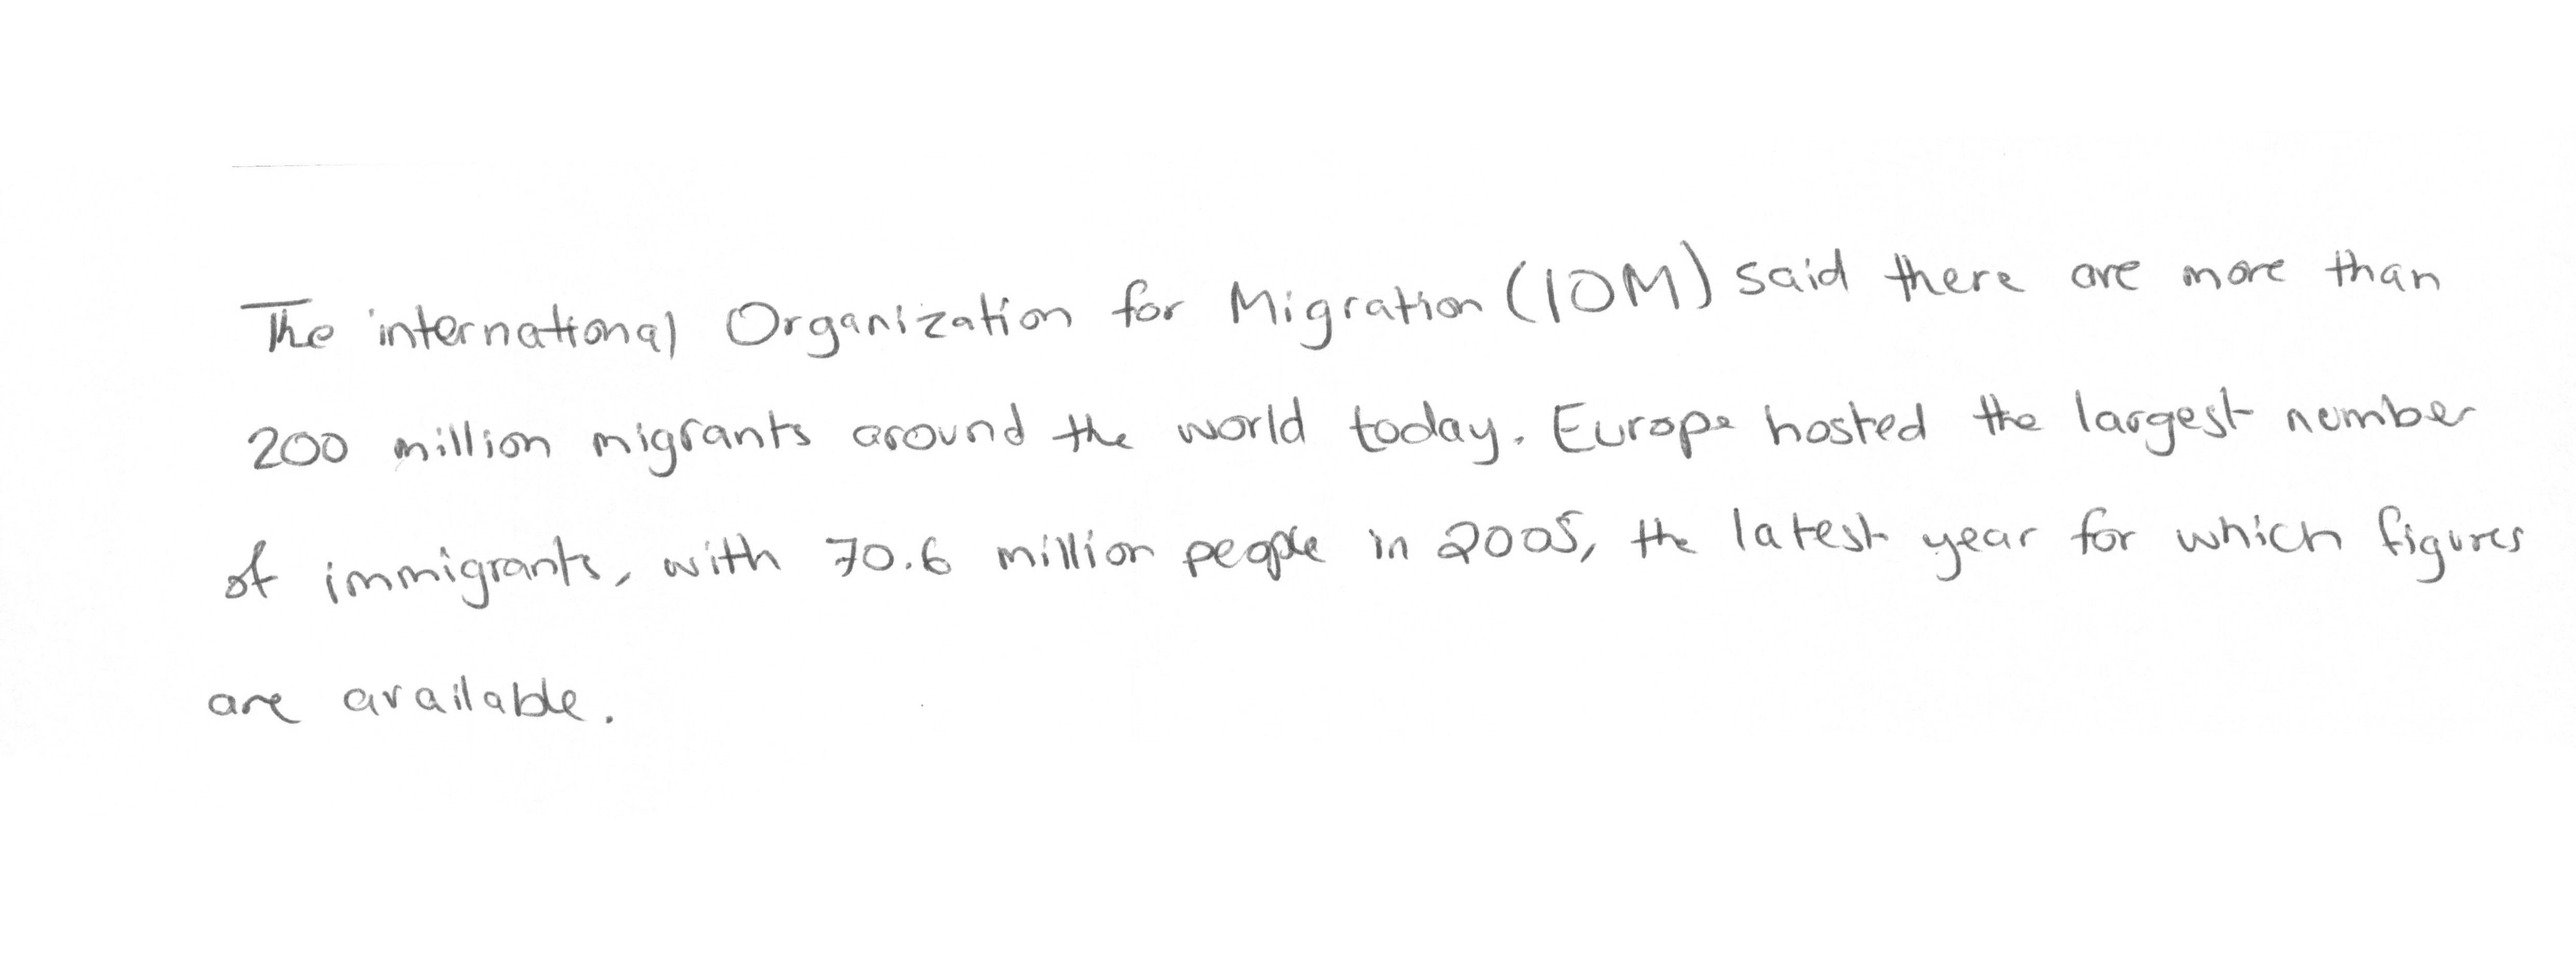 The international Organization for Migration (IOM) said there are more than
200 million migrants around the world today. Europe hosted the largest number
of immigrants, with 70.6 million people in 2005, the latest year for which figures
are available.